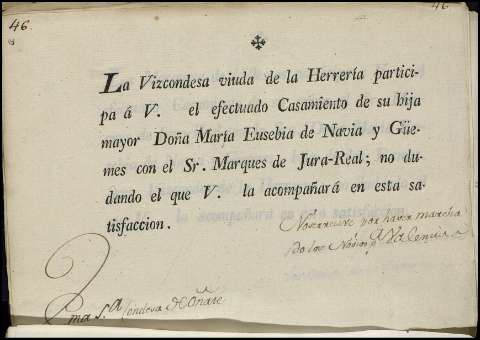 46.
46.
La Vizcondesa viuda de la Herrería partici-
pa á V. el efectuado Casamiento de su hija
mayor Doña María Eusebia de Navia y Güe-
mes con el Sr. Marques de Jura-Real; no du-
dando el que V. la acompañará en esta sa-
tisfaccion.
por haver marcha
do los Novios a Valencia
S.ª Condesa de Oñate